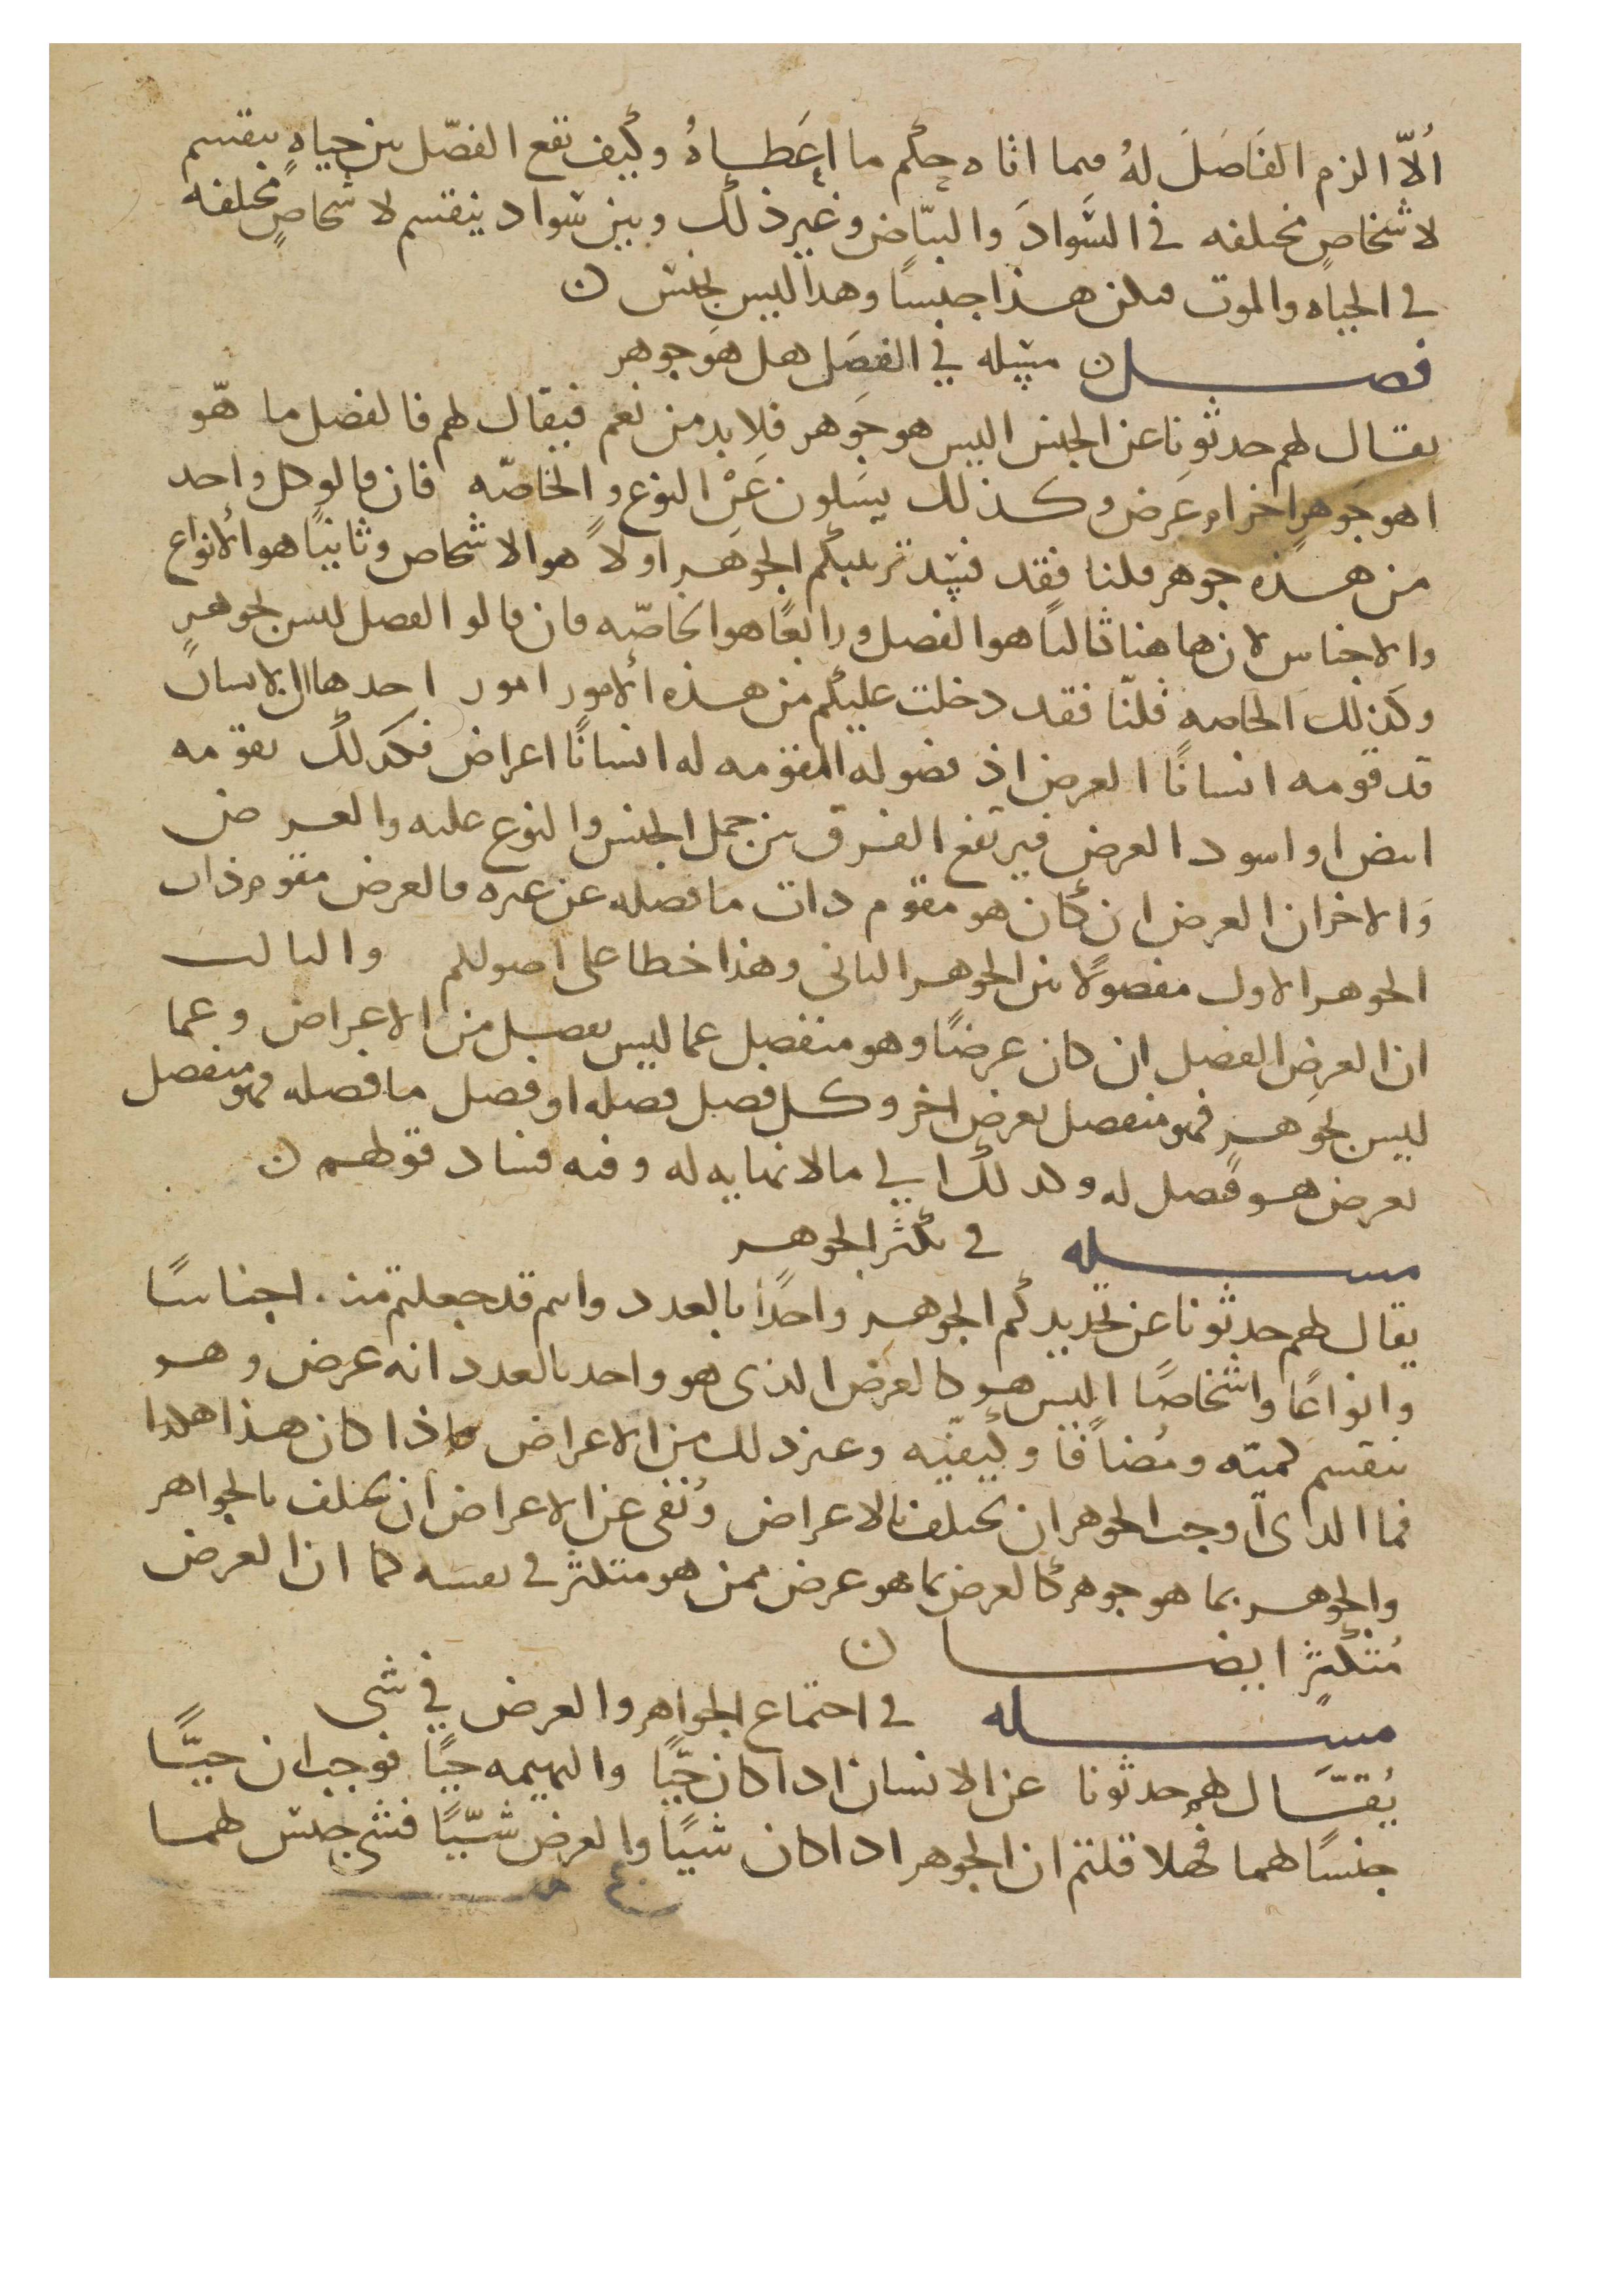 ألّا الزم الفَاصَلَ لهُ فيما اتاه حكم ما اعَطاهُ وكيف تقع الفصّل بين حياهٍ ينقسم
لاشخاصٍ مختلفه في السَواد والبيّاض وغير ذلك وبين سَواد ينقسم لاشخاصٍ مختلفه
في الحياه والموت فيكن هذا جنسًا وهذا ليس بجنس ن
فصل ن مسله في الفصَل هل هَو جوهر
يقال لهم حدثونا عن الجنس اليس هو جَوهر فلا بد من نعم فيقال لهم فالفضل ما هّو
اهو جَوهرٍ اخر ام عَرض وكذلك يسَلون عَنْ النوع والخاصّه فان قالو كل واحد
من هذه جوهر قلنا فقد فسد ترتيبكم الجوهَر اولاً هو الاشخاص وثانيًا هو ألانواع
والاجناس لان هاهنا ثالثا هو الفصل ورابعًا هو الخاصّه فان قالو الفصل ليس بجوهرٍ
وكذلك الخاصه قلنّا فقد دخلت عليكم من هذه ألامور امور احدها ان الانسان
قد قومه انسانًا العرض اذ فصوله المقومه له انسانًا اعراض فكذلك يقومه
ابيض او اسود العرض فيرتفع الفرق بين حمل الجنس والنوع عليه والعرض
وَالاخر ان العرض ان كان هو مقوم ذات ما فصله عن غيره فالعرض مقوم ذات
الجوهر الاول مفصولًا من الجوهر الثاني وهذا خطا على اصولكم والثالث
ان العرض الفصل ان كان عرضًا وهو منفصل عما ليس بفصل من الاعراض وعما
ليس بجوهر فهو منفصل بعرض اخر وكل فصل فصله او فصل ما فصله فهو منفصل
بعرض هو فصل له وكذلك الي ما لا نهايه له وفيه فساد قولهم ن
مسله في تكثر الجوهر
يقال لهم حدثونا عن تحديدكم الجوهر واحدًا بالعدد وانتم قد جعلتم منه اجناسًا
وانواعًا واشخاصًا اليس هو كالعرض الذي هو واحد بالعدد انه عرض وهو
ينقسم كميّه ومُضافًا وكيفيّه وغير ذلك من الاعراض فاذا كان هذا هكذا
فما الذي اوجب الجوهر ان يختلف بالاعراض ونُفى عن الاعراض ان يختلف بالجواهر
والجوهر بما هو جوهر كالعرض بما هو عرض فمن هو متكثر في نفسه كما ان العرض
مُتكثرٍ ايضا ن
مسله في اجتماع الجواهر والعرض في شي
يُقّال لهم حدثونا عن الانسان اذا كان حيًّا والبهيمه حيًّا فوجب ان حيًّا
جنسًا لهما فهلا قلتم ان الجوهر اذا كان شيًا والعرض شيًّا فشي جنس لهما